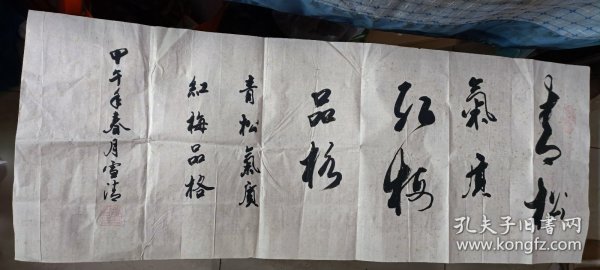 青松
氣质
红梅
品格
青松氣質
紅梅品格
甲午年春月雪清
孔夫子旧书网
www.kongfz.com